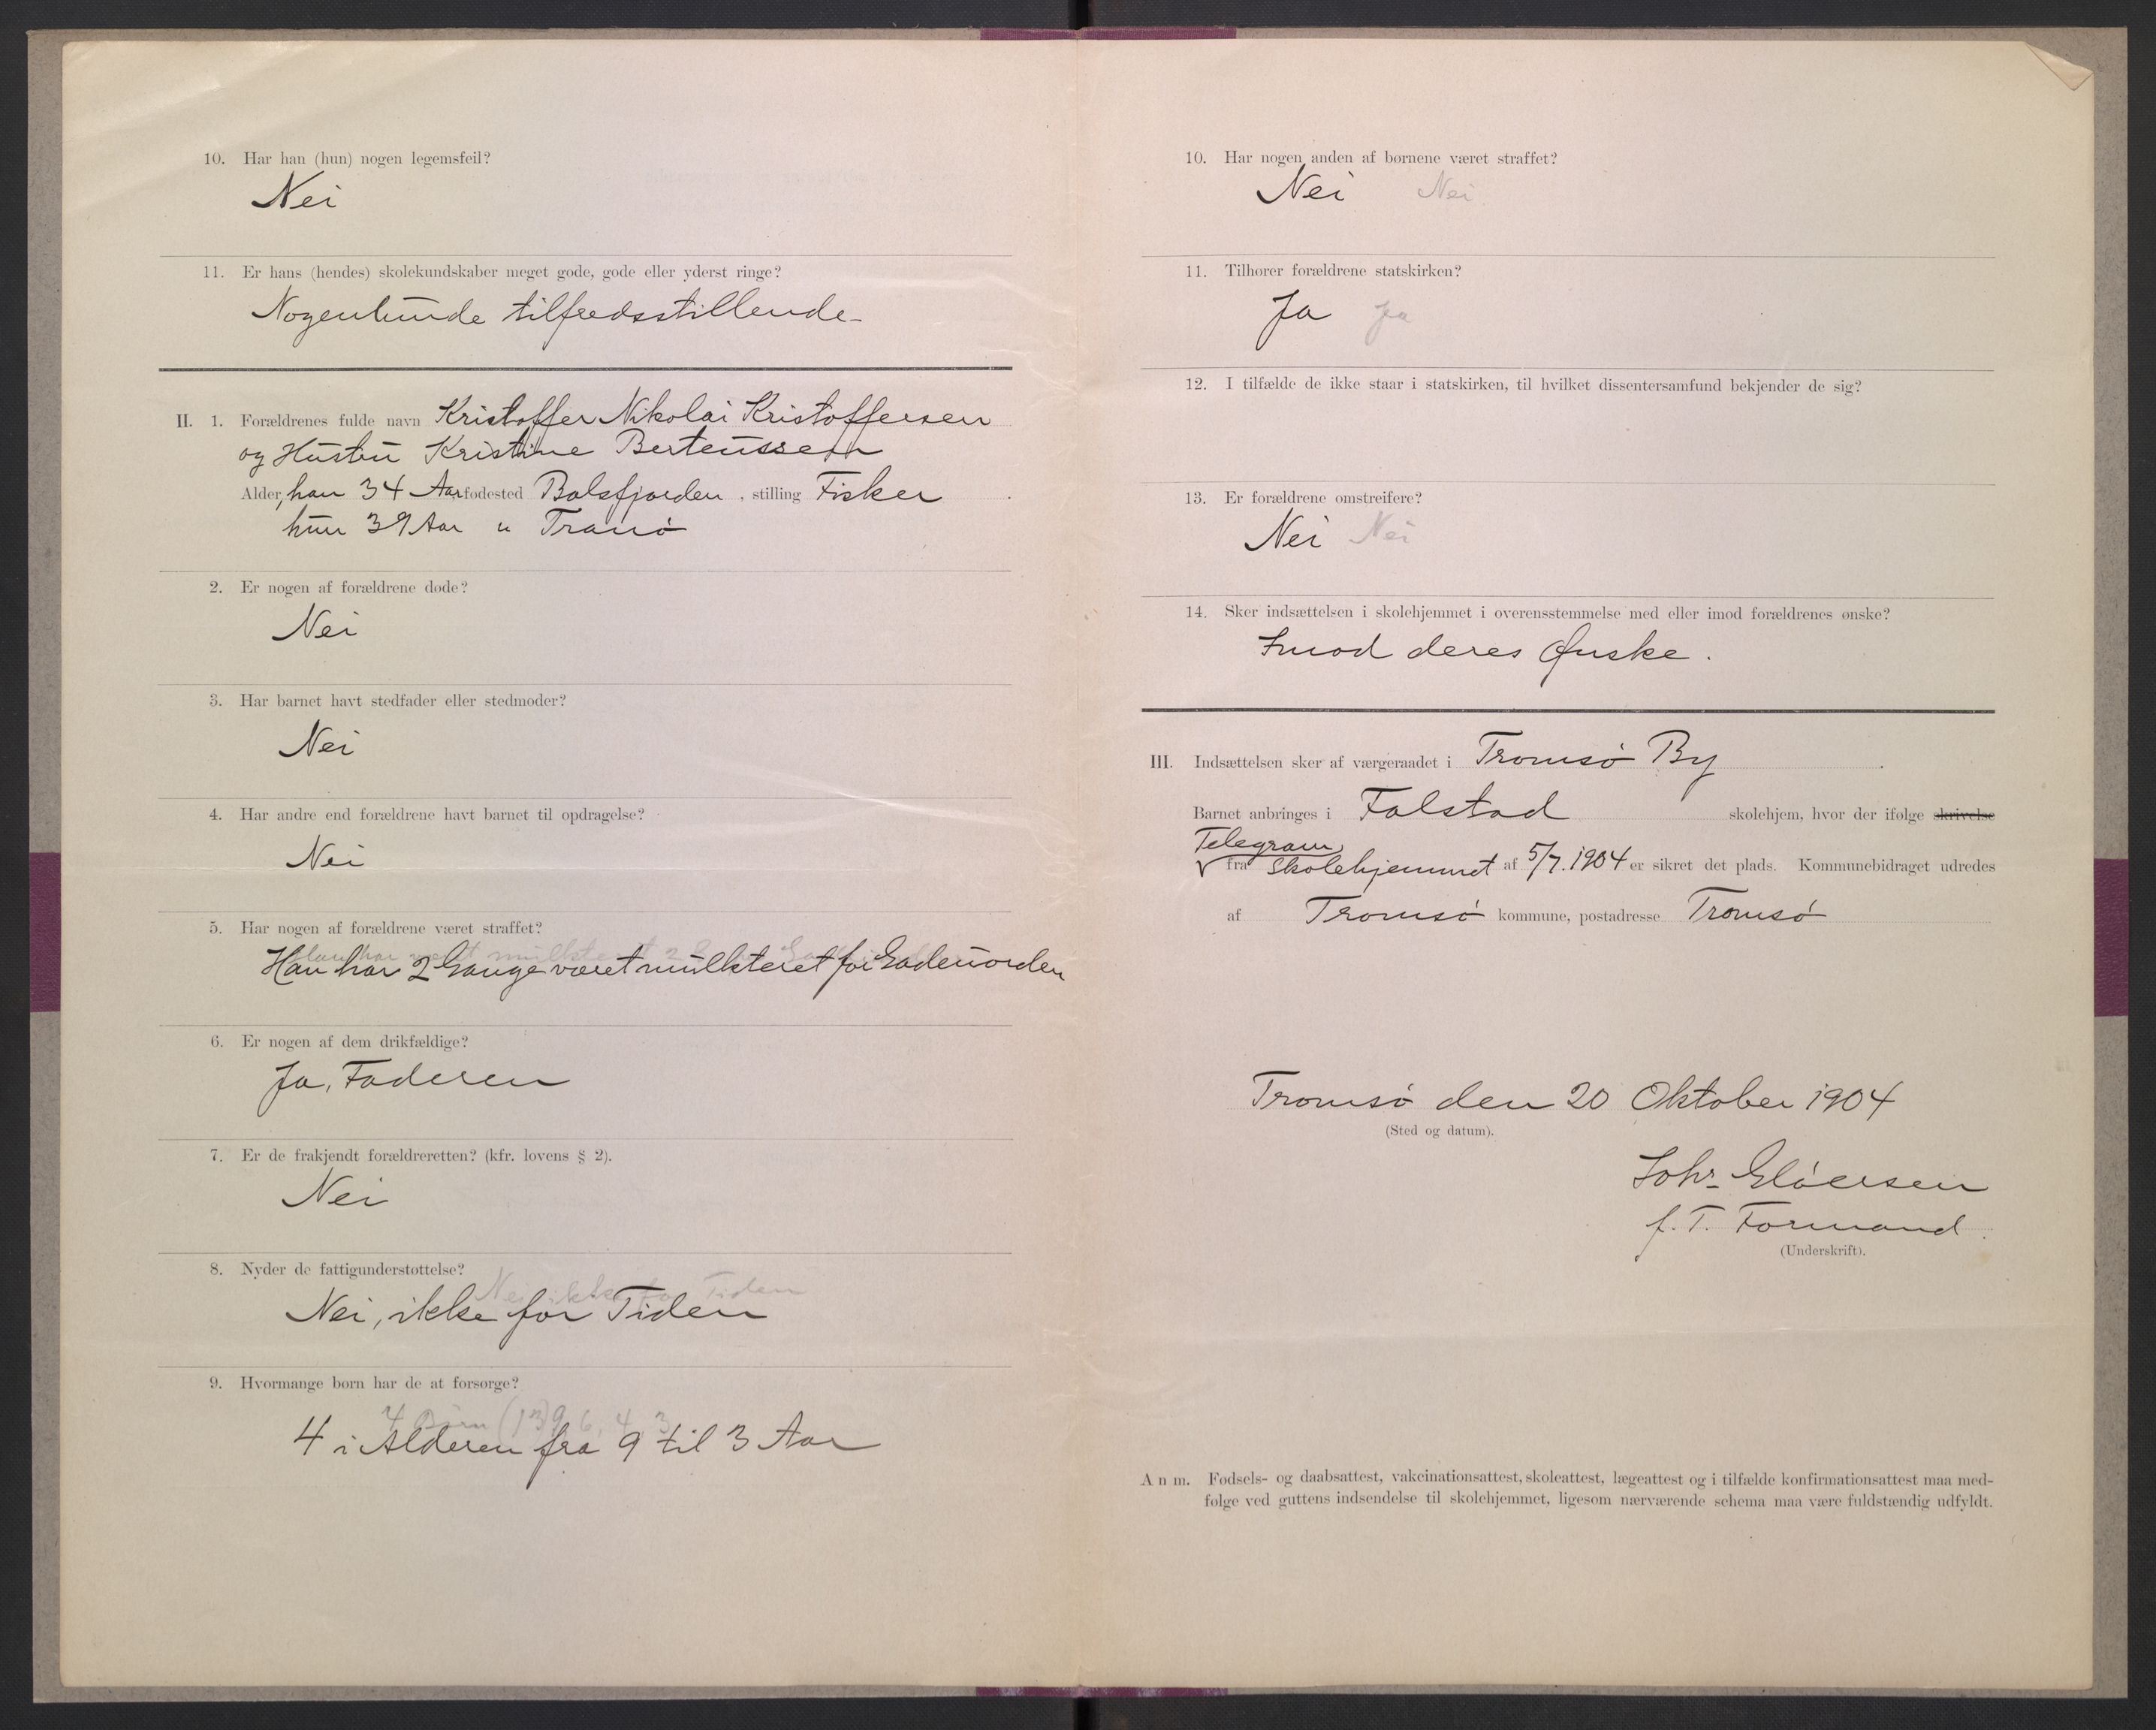 10. Har han (hun) nogen legemsfeil?
Nei
11. Er hans (hendes) skolekundskaber meget gode, gode eller yderst ringe?
Nogenlunde tilfredsstillende
II. 1. Forældrenes fulde navn Kristoffer Nikolai Kristoffersen
og Hustru Kristine Berteussen
Alder, han 34 Aar fødested Balsfjorden, stilling Fisker
hun 39 Aar " Tranø
2. Er nogen af forældrene døde?
Nei
3. Har barnet havt stedfader eller stedmoder?
Nei
4. Har andre end forældrene havt barnet til opdragelse?
Nei
5. Har nogen af forældrene været straffet?
Han har 2 Gange været mulkteret for Gadeuorden
6. Er nogen af dem drikfældige?
Ja, Faderen
7. Er de frakjendt forældreretten? (kfr. lovens § 2).
Nei
8. Nyder de fattigunderstøttelse?
Nei ikke for Tiden
Nei, ikke for Tiden
9. Hvormange børn har de at forsørge?
4 Børn (13) 9, 6, 4, 3
4 i Alderen fra 9 til 3 Aar
10. Har nogen anden af børnene været straffet?
Nei Nei
11. Tilhører forældrene statskirken?
Ja Ja
12. I tilfælde de ikke staar i statskirken, til hvilket dissentersamfund bekjender de sig?
13. Er forældrene omstreifere?
Nei Nei
14. Sker indsættelsen i skolehjemmet i overensstemmelse med eller imod forældrenes ønske?
Imod deres Ønske.
III. Indsættelsen sker af værgeraadet i Tromsø By
Barnet anbringes i Falstad skolehjem, hvor der ifølge skrivelse
Telegram
fra Skolehjemmet af 5/7. 1904 er sikret det plads. Kommunebidraget udredes
af Tromsø kommune, postadresse Tromsø
Tromsø den 20 Oktober 1904
(Sted og datum).
Johs. Gløersen
f. T. Formand
(Underskrift).
Anm. Fødsels- og daabsattest, vakcinationsattest, skoleattest, lægeattest og i tilfælde konfirmationsattest maa med-
følge ved guttens indsendelse til skolehjemmet, ligesom nærværende schema maa være fuldstændig udfyldt.